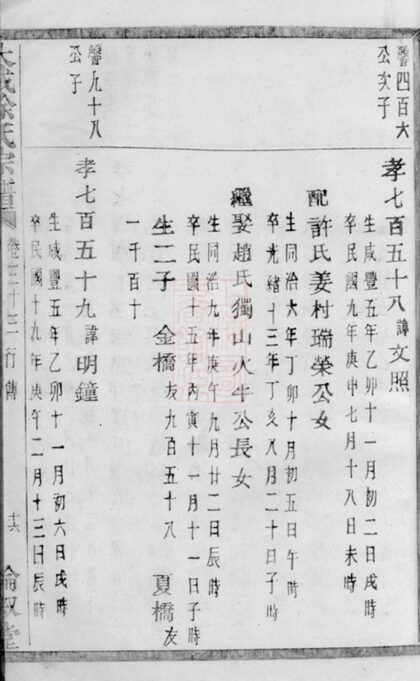 馨四百六
公次子
孝七百五十八諱文照
生咸豐五年乙卯十一月初二日戌時
卒民國九年庚申七月十八日未時
配許氏姜村瑞榮公女
生同治六年丁卯十月初五日午時
卒光緒十三年丁亥八月二十日子時
繼娶趙氏獨山火牛公長女
生同治九年庚午九月廿二日辰時
卒民國十五年丙寅十一月十一日子時
生二子 金橋友九百五十八 夏橋友
一千百十
馨九十八
公子
孝七百五十九諱明鐘
生咸豐五年乙卯十一月初六日戌時
卒民國十九年庚午二月十三日辰時
徐氏宗譜
卷之十三 行傳
十六
倫敘堂